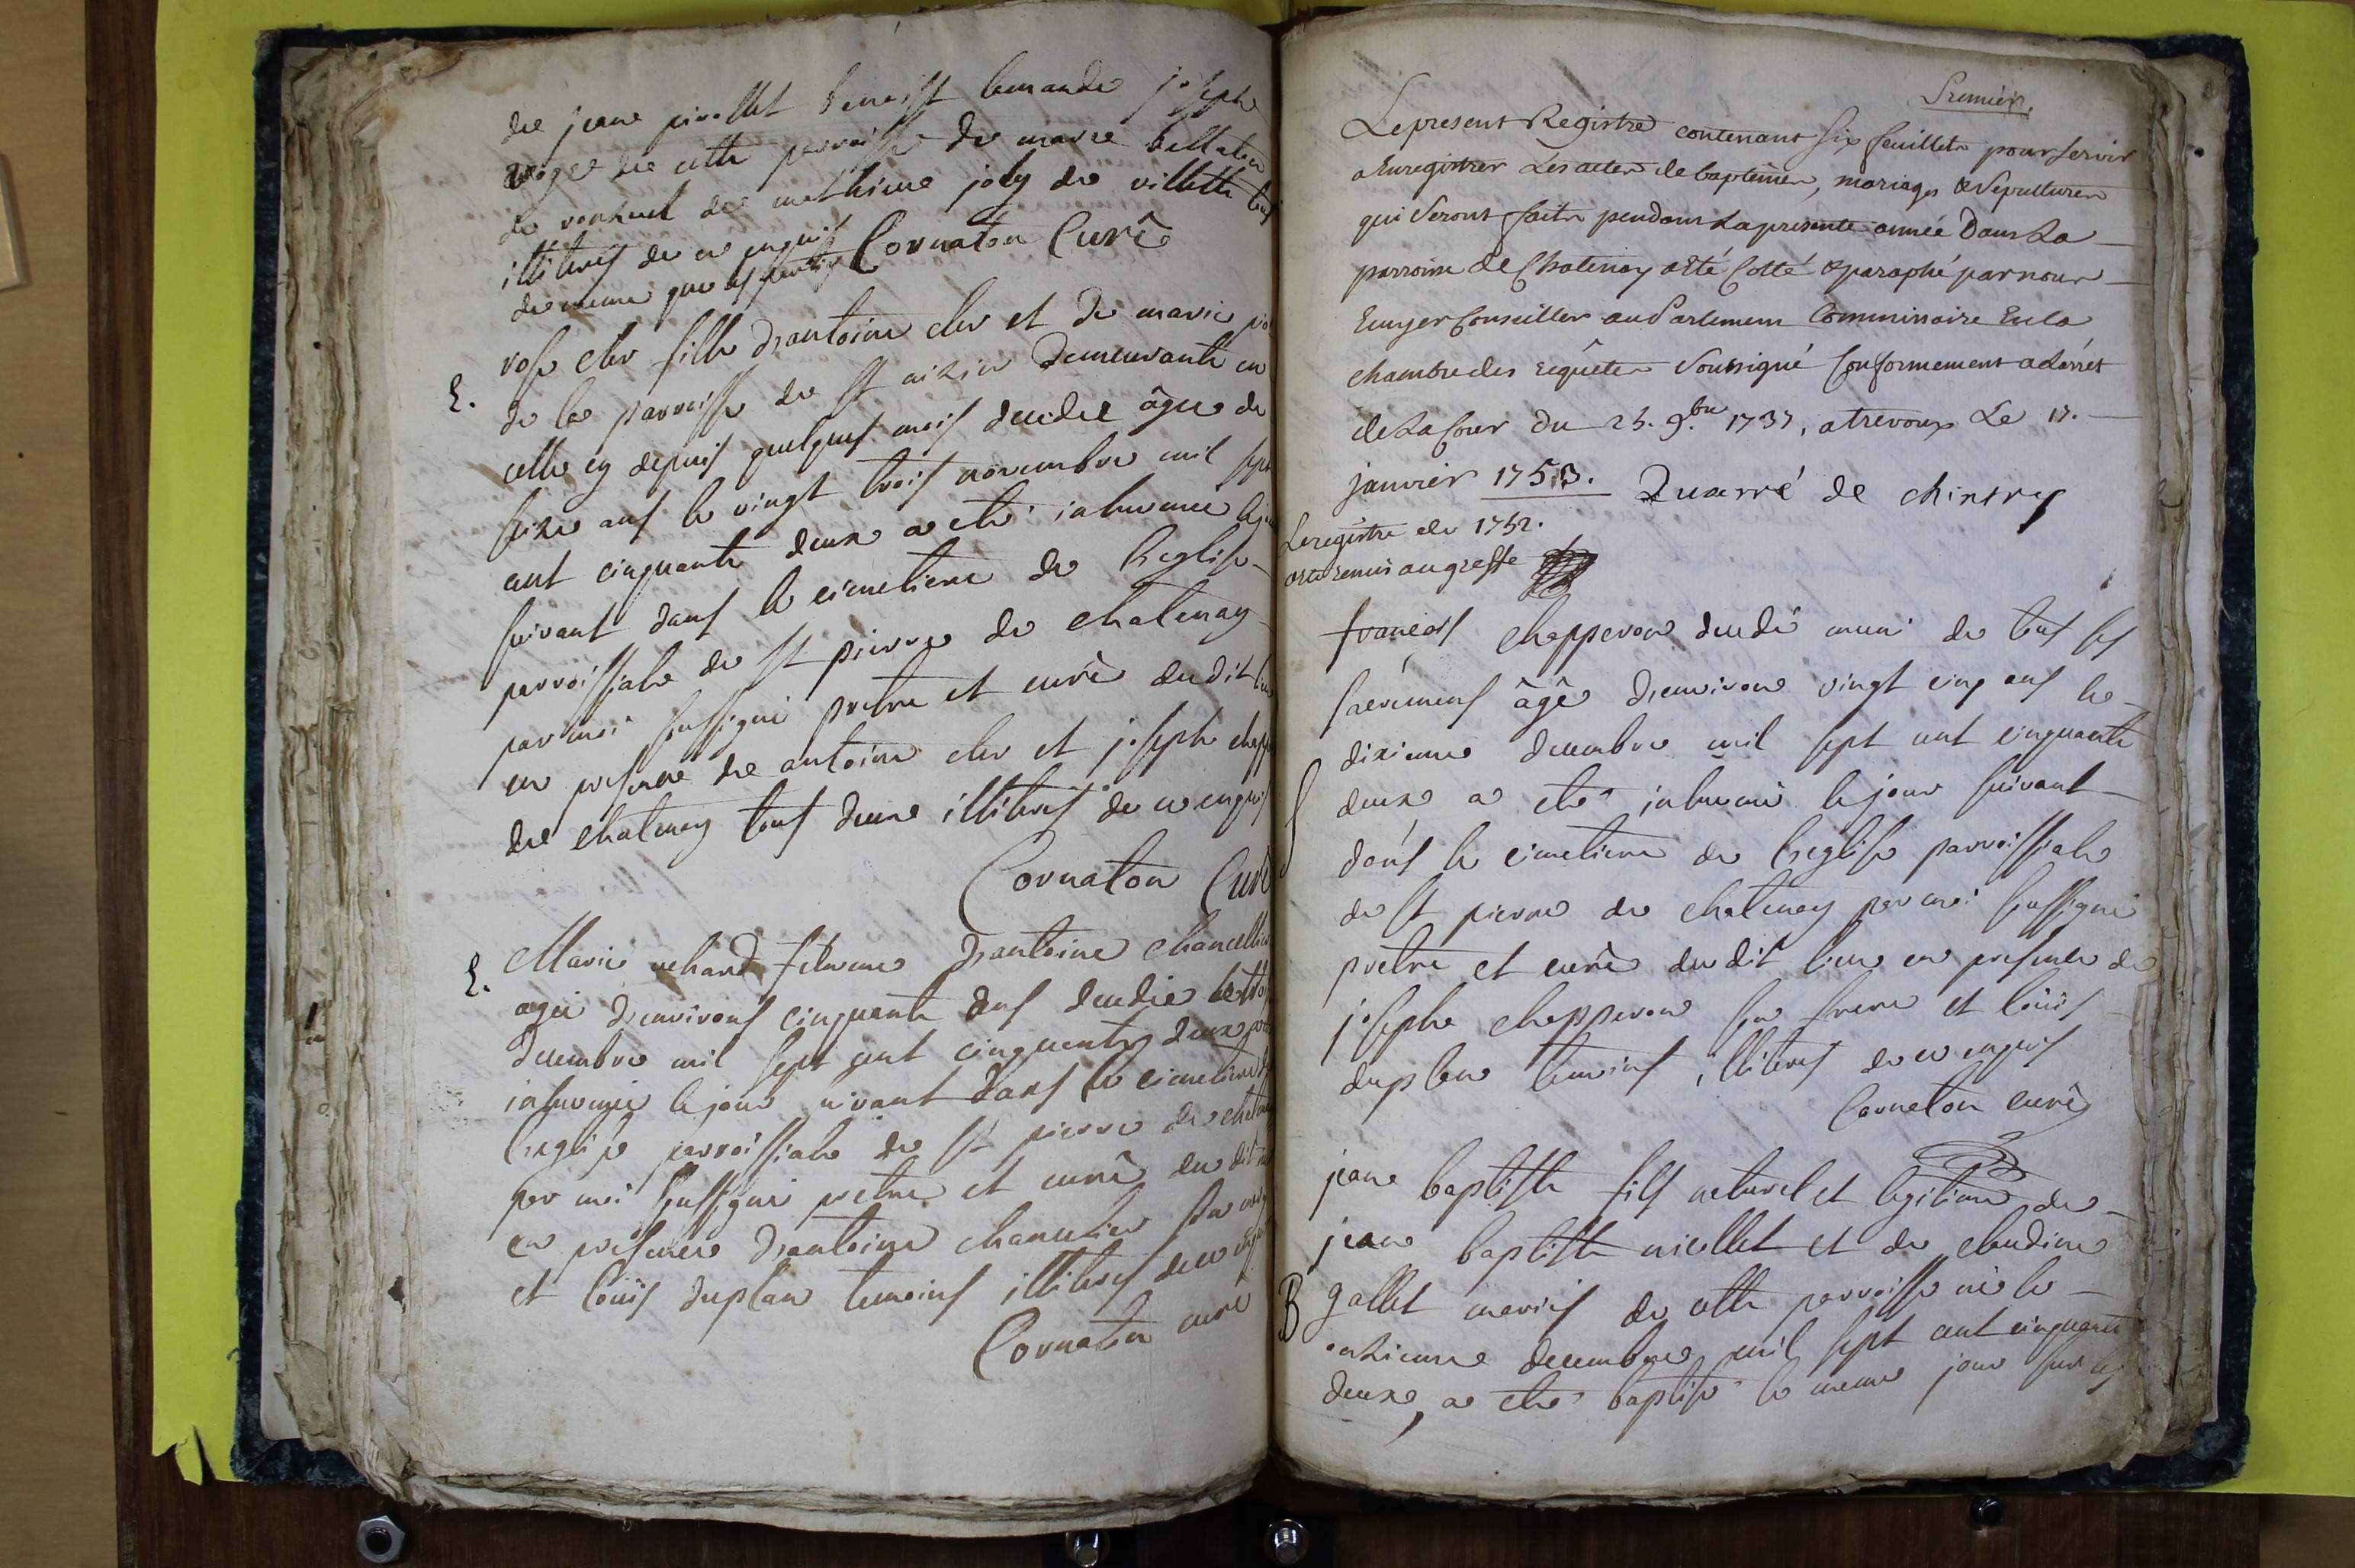 de jeane pirollet benoist lemande joseph
de cette parroisse de marie
de mathieu joly de villette
illiteres de ce enquis
de meme que les parties Cornaton Curé
rose cler fille d'antoine cler et de marie
S. de la parroisse de st nizier demeurante en
celle cy depuis quelques mois decedee âgee de
seize ans le vingt trois novembre mil sept
cent cinquante deux a eté inhumée le jour
suivant dans le cimetiere de l'eglise
parroissiale de st pierre de chatenay
par moi soussigné pretre et curé dudit lieu
en presence de antoine cler et joseph
de chatenay tous deux illiteres de ce enquis
Cornaton Curé
S. Marie femme d'antoine chancellier
agée d'environs cinquante ans decedee le
decembre mil sept cent cinquante deux
inhumée le jour suivant dans le cimetiere de
l'eglise parroissiale de st pierre de chatenay
par moi soussigné pretre et curé du dit
en presence d'antoine chancelier son
et loüis duplan temoins illiteres de ce enquis
Cornaton curé
Premier,
Le present Registre contenant six feuillets pour servir
a Enregistrer Les actes de baptemes, mariages & sepultures
qui seront faits pendant La presente année Dans La
parroisse de Chatenay a eté Cotté & paraphé par nous
Ecuyer Conseiller au Parlement Commissaire En la
chambre des requêtes soussigné Conformement a L'arrêt
de La Cour du 25. 9.bre 1737, a trevoux Le 17.
janvier 1753. Quarré de chintry
Le registre de 1752.
a eté remis au greffe
françois chapperon decedé muni de tous ses
sacremens âgé d'environ vingt cinq ans le
dixieme decembre mil sept cent cinquante
S deux a eté inhumé le jour suivant
dans le cimetiere de l'eglise parroissiale
de st pierre de chatenay par moi soussigné
pretre et curé du dit lieu en presence de
joseph chapperon son frere et loüis
duplan temoins illiteres de ce enquis
Cornaton curé
jean baptiste fils naturel et legitime de
jean baptiste niollet et de claudine
B gallet mariés de cette parroisse né le
onzieme decembre mil sept cent cinquante
deux, a eté baptisé le meme jour sur les